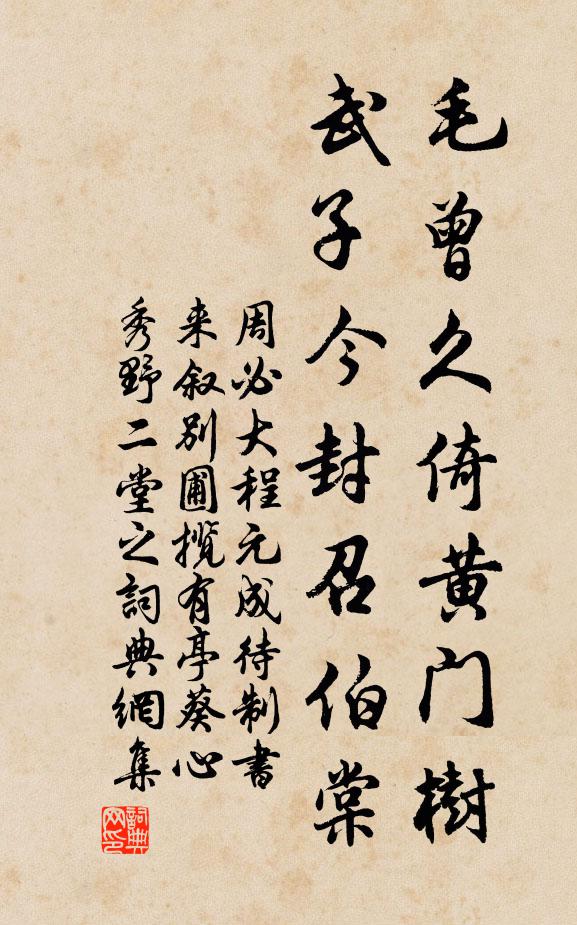 毛曾久倚黄门樹
武子今封召伯棠
周必大程元成待制書
来叙别圃揽有亭葵心
秀野二堂之詞典網集
詞典网印